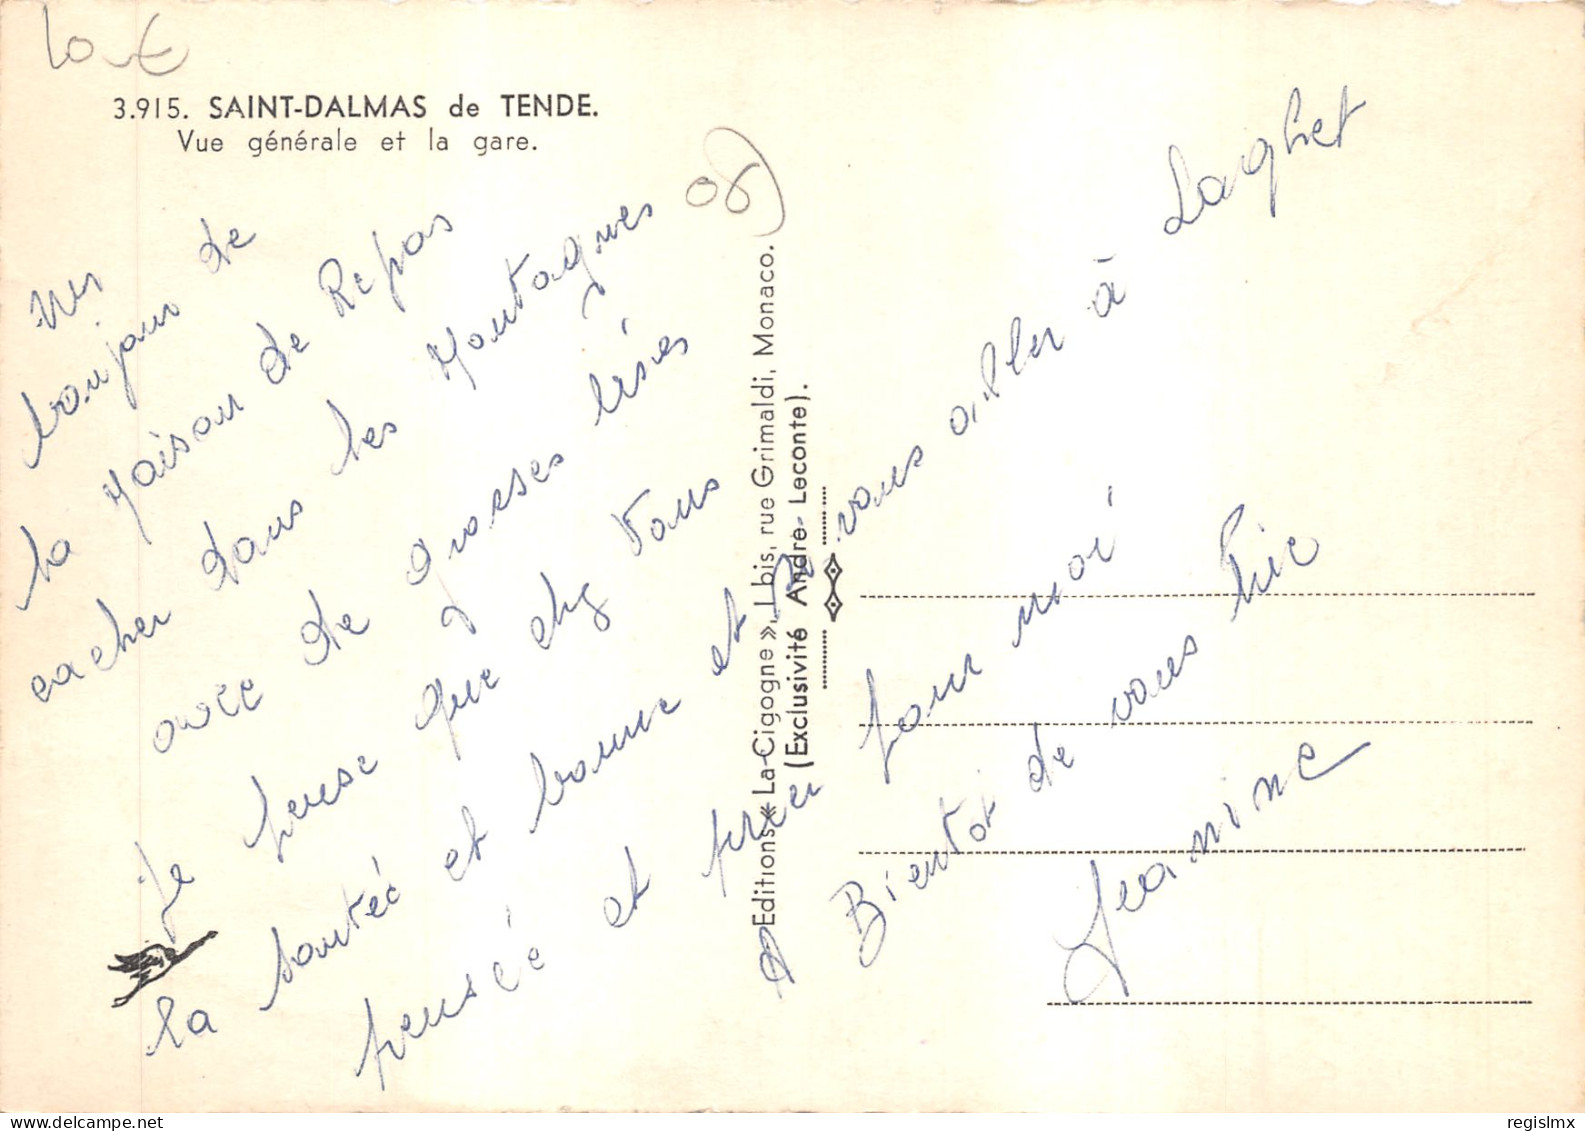 3.915. SAINT-DALMAS de TENDE.
Vue générale et la gare.
08)
bonjour de
la Maison de Repas
cacher dans les Montagnes
avec de grosses bises
Je pense que chez vous
la santée et bonne et si vous aller à Laghet
pensée et prier pour moi
A Bientot de vous lire
Jeanine
Editions « La Cigogne », 1 bis, rue Grimaldi, Monaco.
(Exclusivité André Leconte).
regislmx